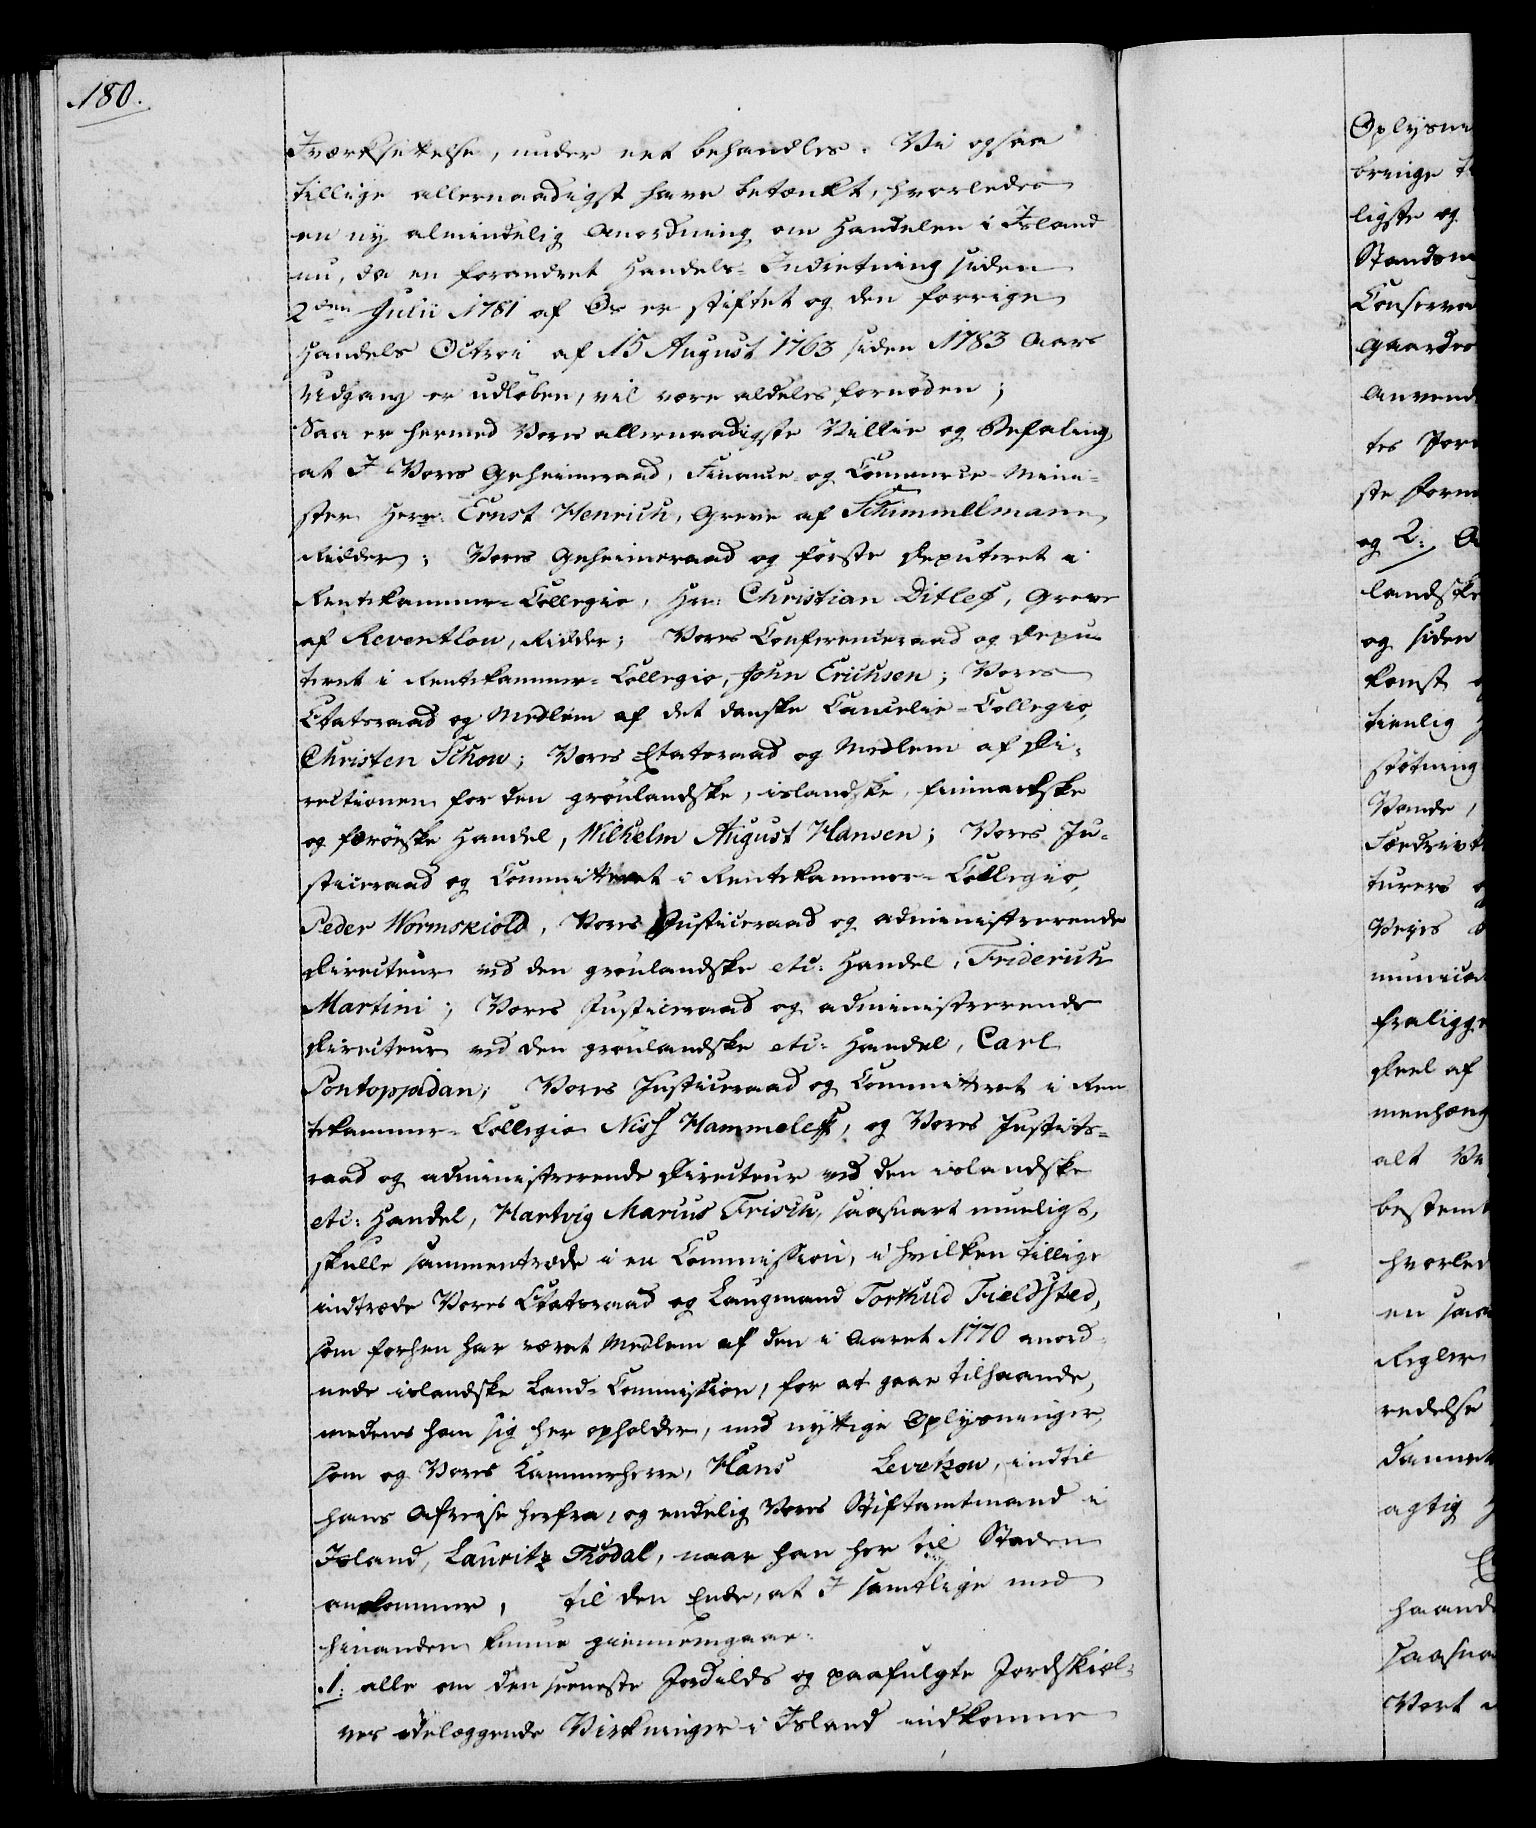 180.
Iværksættelse, under eet behandles. Vi ogsaa
tillige allernaadigst have betænkt, hvorledes
en ny almindelig Anordning om Handelen i Island
nu, da en forandret Handels-Indretning siden
2den Julii 1781 af Os er stiftet og den forrige
Handels Octroi af 15 August 1763 siden 1783 Aars
Udgang er udløben, vil være aldeles fornøden;
Saa er hermed Vores allernaadigste Villie og Befaling,
at I Vores Geheimeraad, Finance- og Commerce-Mini-
ster Herr: Ernst Henrich, Greve af Schimmelmann,
Ridder; Vores Geheimeraad og første Deputeret i
Rentekammer-Collegio, Hr: Christian Ditlef, Greve
af Reventlow, Ridder; Vores Conferenceraad og Depu-
teret i Rentekammer-Collegio, John Erichsen; Vores
Etatsraad og Medlem af det danske Cancelie-Collegio,
Christen Schow; Vores Etatsraad og Medlem af Di-
rectionen for den grønlandske, islandske, finmarkske
og færøiske Handel, Wilhelm August Hansen; Vores Ju-
sticeraad og Committeret i Rentekammer-Collegio,
Peder Wormskiold, Vores Justiceraad og administrerende
Directeur ved den grønlandske etc: Handel, Friderich
Martini; Vores Justiceraad og administrerende
Directeur ved den grønlandske etc: Handel, Carl
Pontoppidan; Vores Justiceraad og Committeret i Ren-
tekammer-Collegio Niss Hammeleff, og Vores Justits-
raad og administrerende Directeur ved den islandske
etc: Handel, Hartvig Marcus Frisch, saasnart mueligt,
skulle sammentræde i en Commission, i hvilken tillige
indtræde Vores Etatsraad og Laugmand Torchild Fieldsted,
som forhen har været Medlem af den i Aaret 1770 anord-
nede islandske Land-Commission, for at gaae tilhaande,
medens han sig her opholder, med nyttige Oplysninger,
som og Vores Kammerherre, Hans Levetzow, indtil
hans Afreise herfra, og endelig Vores Stiftamtmand i
Island, Lauritz Thodal, naar han her til Staden
ankommer, til den Ende, at I samtlige med
hinanden kunne giennemgaae:
1: alle om den seeneste Jordilds og paafulgte Jordskiæl-
ves ødelæggende Virkninger i Island indkomne
Oplysni
bringe t
ligste og
Standsm
Conserva
gaardes
Anvend
tes
ste form
og 2:
landske
og siden
komst
tienlig
støtning
Vande,
Fædrivt
turers
Veyes
municat
fraligge
Deel af
menhæng
alt Ve
bestemt
hvorled
en saa
Regler
redelse
dannet
agtig
haand
saasna
Vort